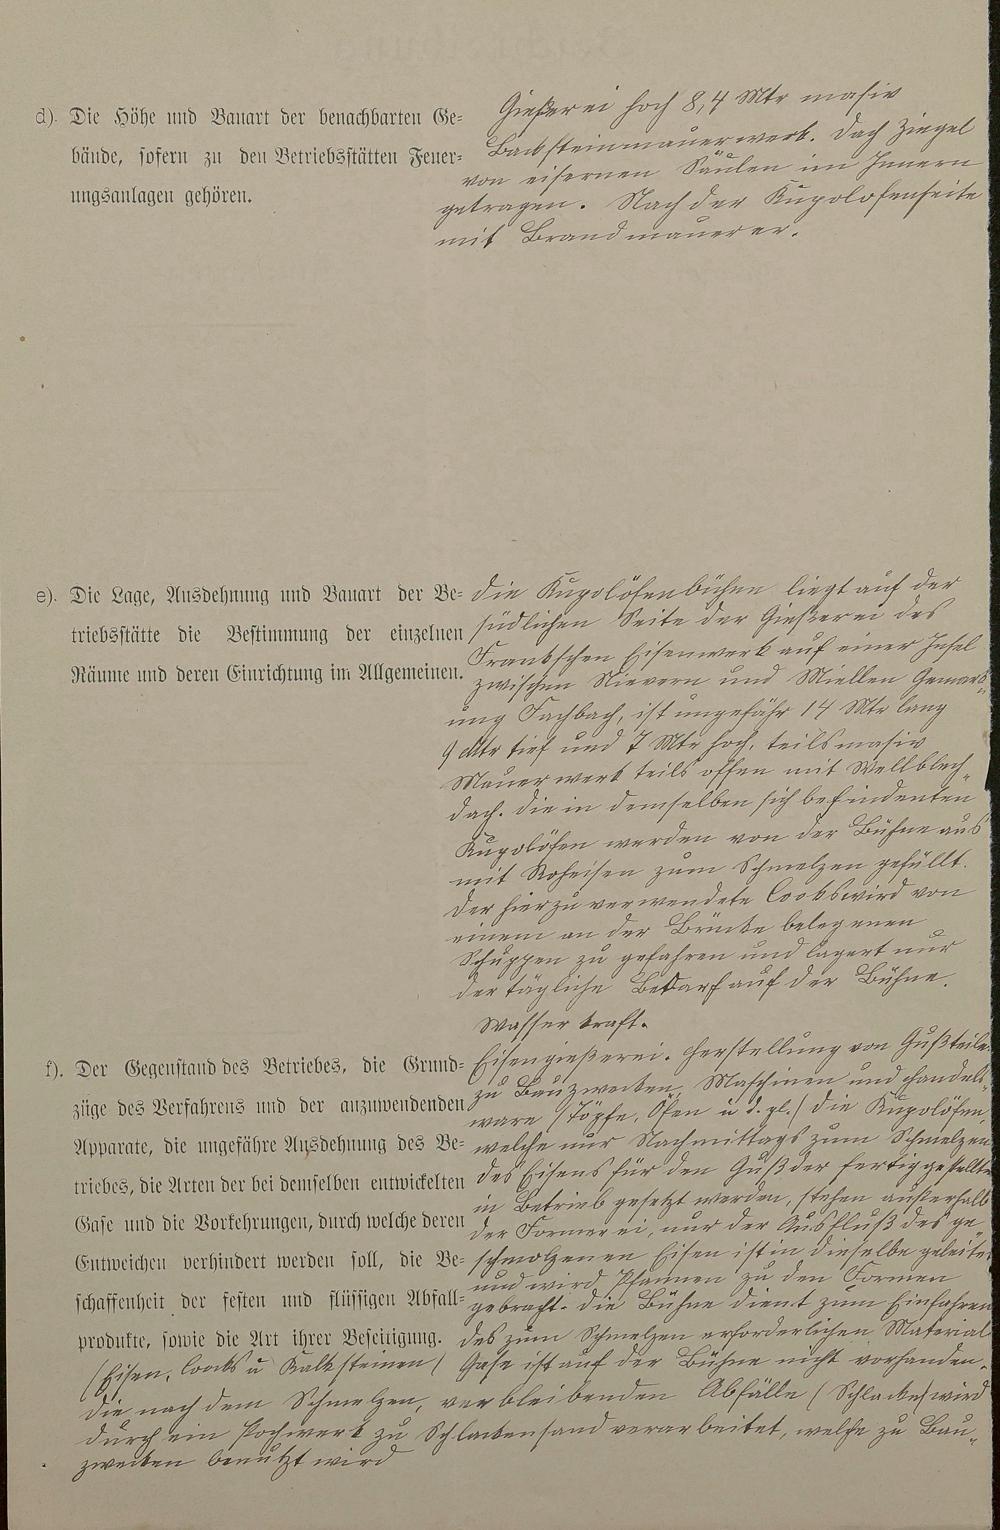 d). Die Höhe und Bauart der benachbarten Ge-
bäude, sofern zu den Betriebsstätten Feuer-
ungsanlagen gehören.
Gießerei hoch 8,4 Mtr masiv
Backsteinmauerwerk. Dach Ziegel
von eisernen Säulen im Innern
getragen. Nach der Kupolofenseite
mit Brandmauerer.
e). Die Lage, Ausdehnung und Bauart der Be-
triebsstätte die Bestimmung der einzelnen
Räume und deren Einrichtung im Allgemeinen.
Die Kupolöfenbühne liegt auf der
südlichen Seite der Gießerei des
Frankschen Eisenwerk auf einer Insel
zwischen Nievern und Miellen Gemark-
ung Fachbach, ist ungefähr 14 Mtr lang
9 Mtr tief und 7 Mtr hoch, teils masiv
Mauerwerk teils offen mit Wellblech-
dach. Die in demselben sich befindenten
Kupolöfen werden von der Bühne aus
mit Roheisen zum Schmelzen gefüllt.
Der hierzu verwendete Cooks wird von
einem an der Brücke belegenen
Schuppen zu gefahren und lagert nur
der tägliche Bedarf auf der Bühne.
Wasserkraft.
f). Der Gegenstand des Betriebes, die Grund-
züge des Verfahrens und der anzuwendenden
Apparate, die ungefähre Ausdehnung des Be-
triebes, die Arten der bei demselben entwickelten
Gase und die Vorkehrungen, durch welche deren
Entweichen verhindert werden soll, die Be-
schaffenheit der festen und flüssigen Abfall-
produkte, sowie die Art ihrer Beseitigung.
Eisengießerei. Herstellung von Gußteile
zu Bauzwecken, Maschinen und Handels-
ware (Töpfe, Öfen u d. gl.) Die Kupolöfen,
welche nur Nachmittags zum Schmelzen
des Eisens für den Guß der fertiggestellte
in Betrieb gesetzt werden, stehen außerhalb
der Formerei, nur der Ausfluß des ge
schmolzenen Eisen ist in dieselbe geleitet
und wird Pfannen zu den Formen
gebracht. Die Bühne dient zum Einfahren
des zum Schmelzen erforderlichen Material
(Eisen, Coocks u Kalksteinen) Gase ist auf der Bühne nicht vorhanden.
Die nach dem Schmelzen, verbleibenden Abfälle (Schlacke) wird
durch ein Pochwerk zu Schlackensand verarbeitet, welche zu Bau-
zwecken benutzt wird